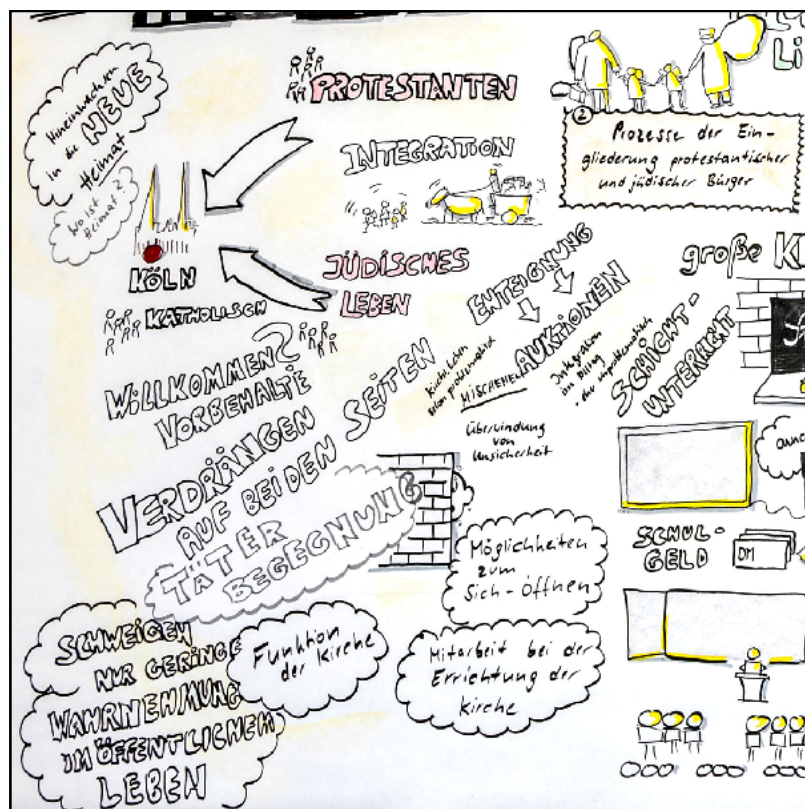 Hineinwachsen
in die NEUE
Heimat
Wo ist
Heimat?
KÖLN
KATHOLISCH
PROTESTANTEN
INTEGRATION
JÜDISCHES
LEBEN
Li
2
Prozesse der Ein-
gliederung protestantischer
und jüdischer Bürger
WILLKOMMEN?
VORBEHALTE
VERDRÄNGEN
AUF BEIDEN SEITEN
TÄTER
BEGEGNUNG
ENTEIGNUNG
AUKTIONEN
Kirchlich
MISCHEHEN
Integration
im Alltag
Überwindung
von
Unsicherheit
große K
SCHICHT-
UNTERRICHT
SCHUL-
GELD
DM
Möglichkeiten
zum
Sich-Öffnen
Funktion
der Kirche
Mitarbeit bei der
Errichtung der
Kirche
SCHWEIGEN
NUR GERINGE
WAHRNEHMUNG
IM ÖFFENTLICHEN
LEBEN